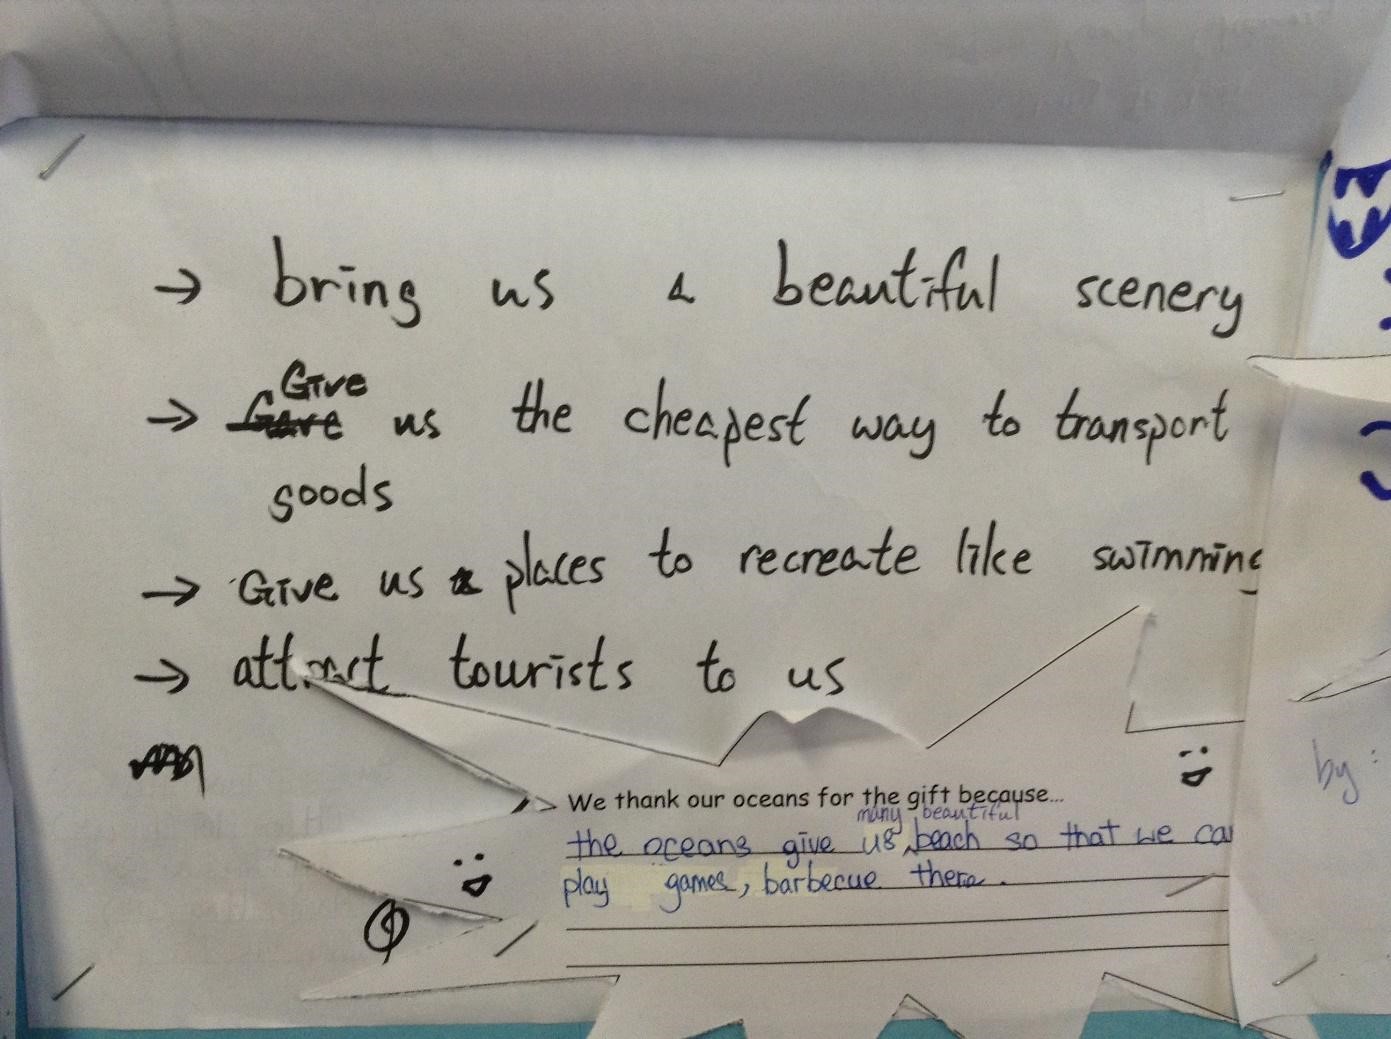 → bring us a beautiful scenery
Give
→ Gave us the cheapest way to transport
goods
→ Give us places to recreate like swimming
→ attract tourists to us
We thank our oceans for the gift because...
many beautiful
the oceans give us beach so that we ca
play games, barbecue there.
by: